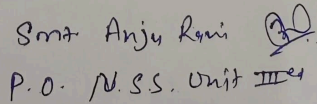 Smt Anju Rani
P.O. N.S.S. Unit III